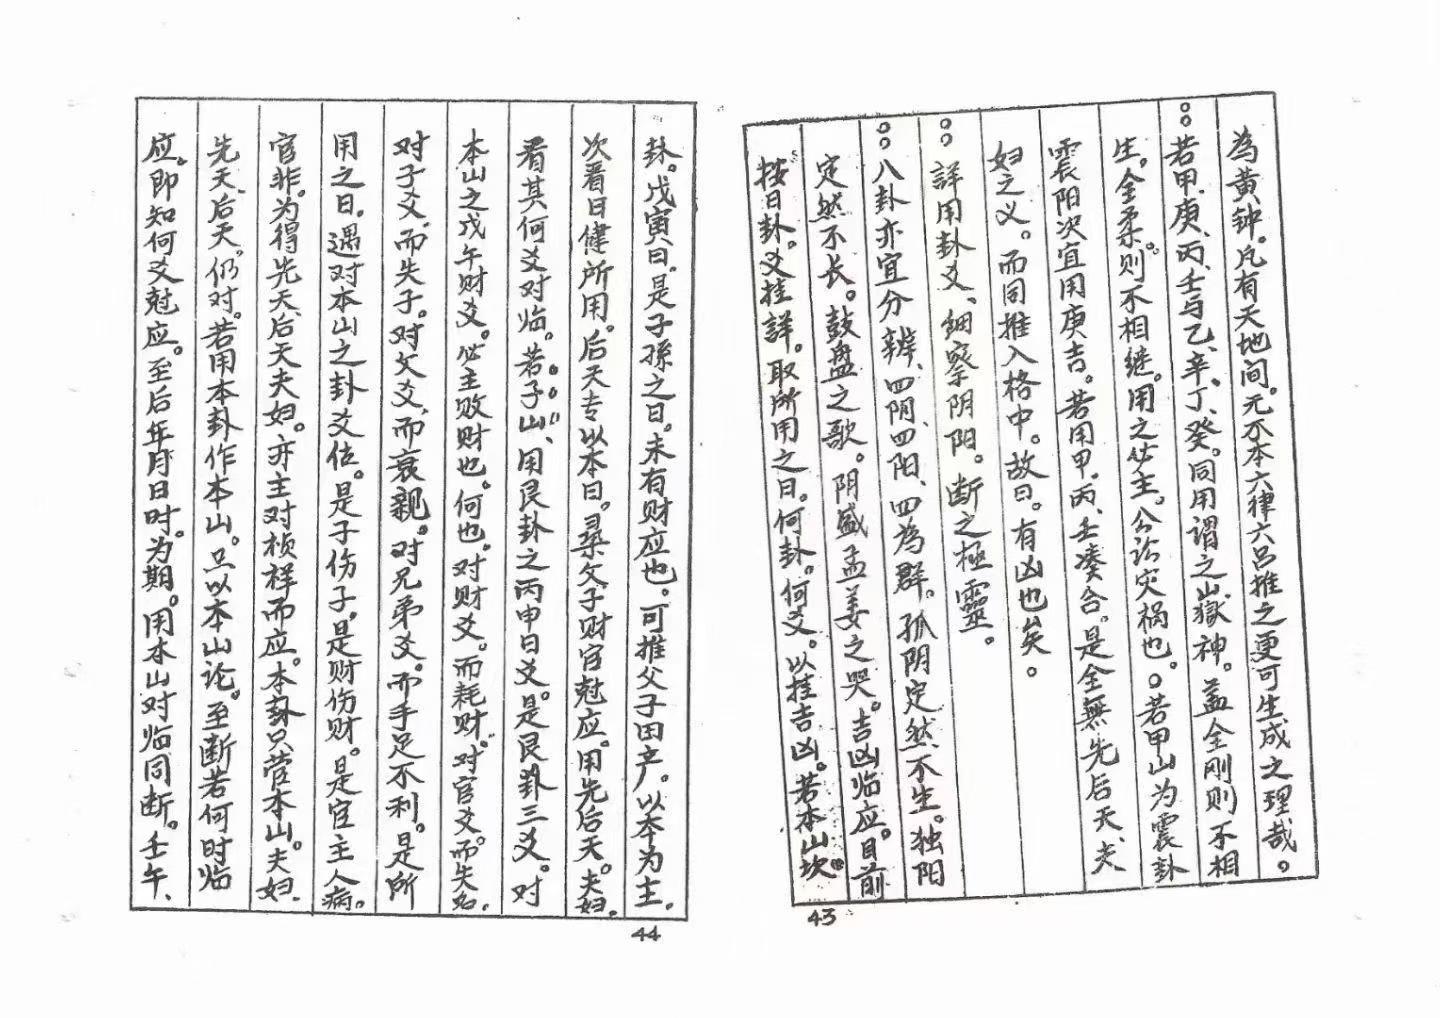 為黄钟。凡有天地间。无不本六律六吕推之更可生成之理哉。
。。若甲、庚、丙、壬与乙、辛、丁、癸。同用谓之山嶽神。盖全刚则不相
生。全柔则不相继。用之必主。分讼灾祸也。。若甲山为震卦
震阳次宜用庚吉。若用甲、丙、壬凑合。是全無先后天、夫
妇之义。而同推入格中。故曰。有凶也矣。
。。詳用卦爻、細察阴阳。断之極靈。
。。八卦亦宜分辨、四阴、四阳、四為群。孤阴定然不生。独阳
定然不长。鼓盘之歌。阴盛孟姜之哭。吉凶临应。目前
按日卦。爻挂詳。取所用之日。何卦。何爻。以挂吉凶。若本山坎
43
卦。戊寅日。是子孫之日。未有财应也。可推父子田产。以本为主。
次看日健所用。后天专以本日。录父子财官尅应。用先后天。夫妇。
看其何爻对临。若子山、用艮卦之丙申日爻。是艮卦三爻。对
本山之戊午财爻。必主败财也。何也。对财爻。而耗财。对官爻。而失名。
对子爻、而失子。对父爻、而哀親。对兄弟爻。而手足不利。是所
用之日。遇对本山之卦爻位。是子伤子。是财伤财。是官主人病。
官非。为得先天、后天夫妇。亦主对桢样而应。本卦只管本山。夫妇、
先天、后天。仍对。若用本卦作本山。只以本山论。至断若何时临
应。即知何爻尅应。至后年月日时。为期。用本山对临同断。壬午、
44